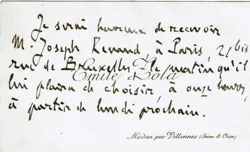 Je serai heureux de recevoir
M. Joseph Renaud, à Paris, 21 bis
rue de Bruxelles, le matin qu'il
Émile Zola
lui plaira de choisir à onze heures,
à partir de lundi prochain.
Médan par Villennes (Seine & Oise)